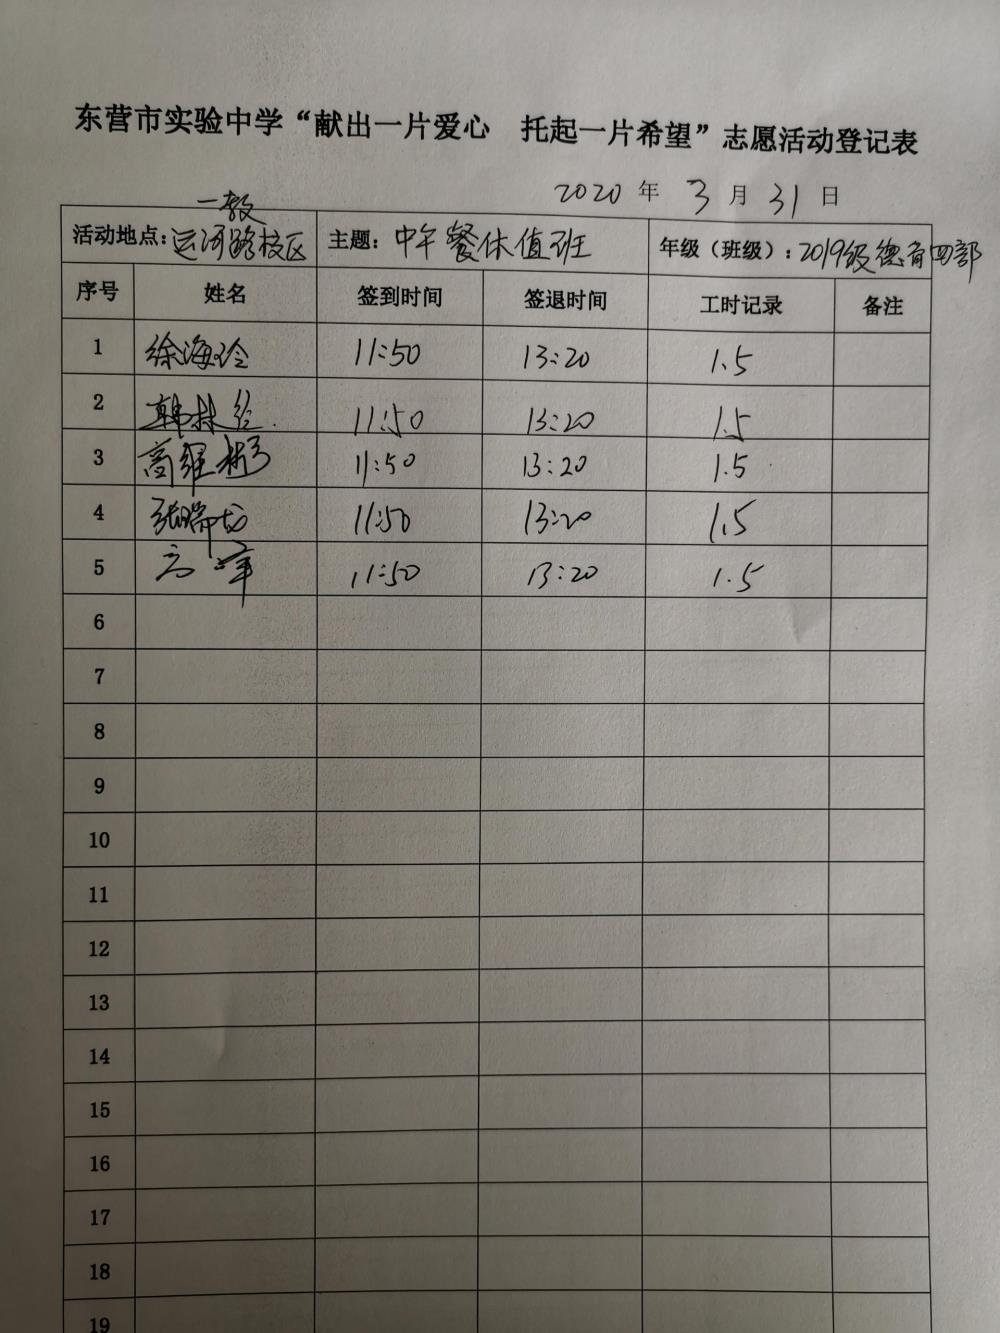 东营市实验中学“献出一片爱心 托起一片希望”志愿活动登记表
2020 年 3 月 31 日
一教
活动地点：运河路校区 主题：中午餐休值班 年级（班级）：2019级德育四部
序号 姓名 签到时间 签退时间 工时记录 备注
1 徐海玲 11:50 13:20 1.5
2 韩林 11:50 13:20 1.5
3 高维彬 11:50 13:20 1.5
4 张瑞龙 11:50 13:20 1.5
5 高峰 11:50 13:20 1.5
6
7
8
9
10
11
12
13
14
15
16
17
18
19